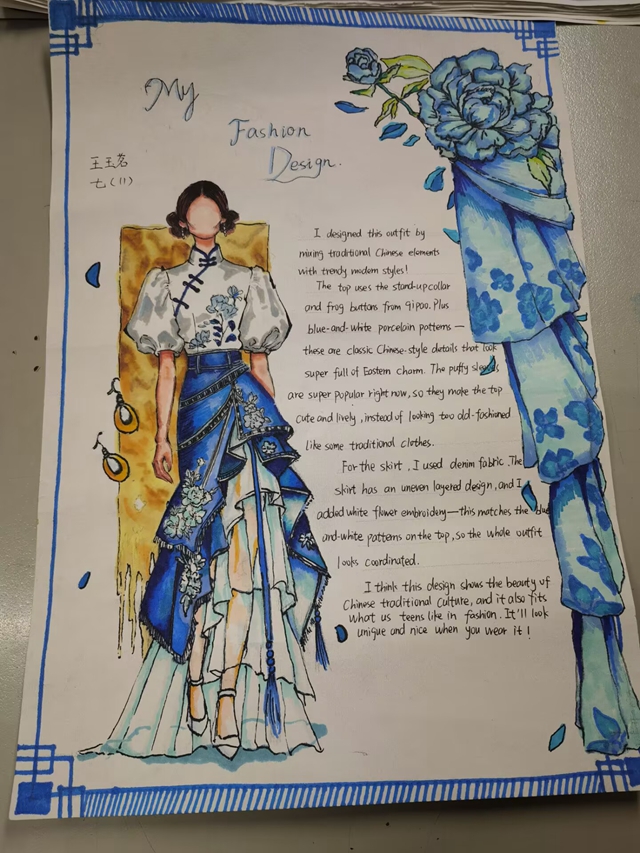 My
Fashion
Design.
王玉茗
七(11)
I designed this outfit by
mixing traditional Chinese elements
with trendy modern styles!
The top uses the stand-up collar
and frog buttons from qipao. Plus
blue-and-white porcelain patterns —
these are classic Chinese-style details that look
super full of Eastern charm. The puffy sleeves
are super popular right now, so they make the top
cute and lively, instead of looking too old-fashioned
like some traditional clothes.
For the skirt, I used denim fabric. The
skirt has an uneven layered design, and I
added white flower embroidery — this matches the blue
and-white patterns on the top, so the whole outfit
looks coordinated.
I think this design shows the beauty of
Chinese traditional culture, and it also fits
what us teens like in fashion. It'll look
unique and nice when you wear it!